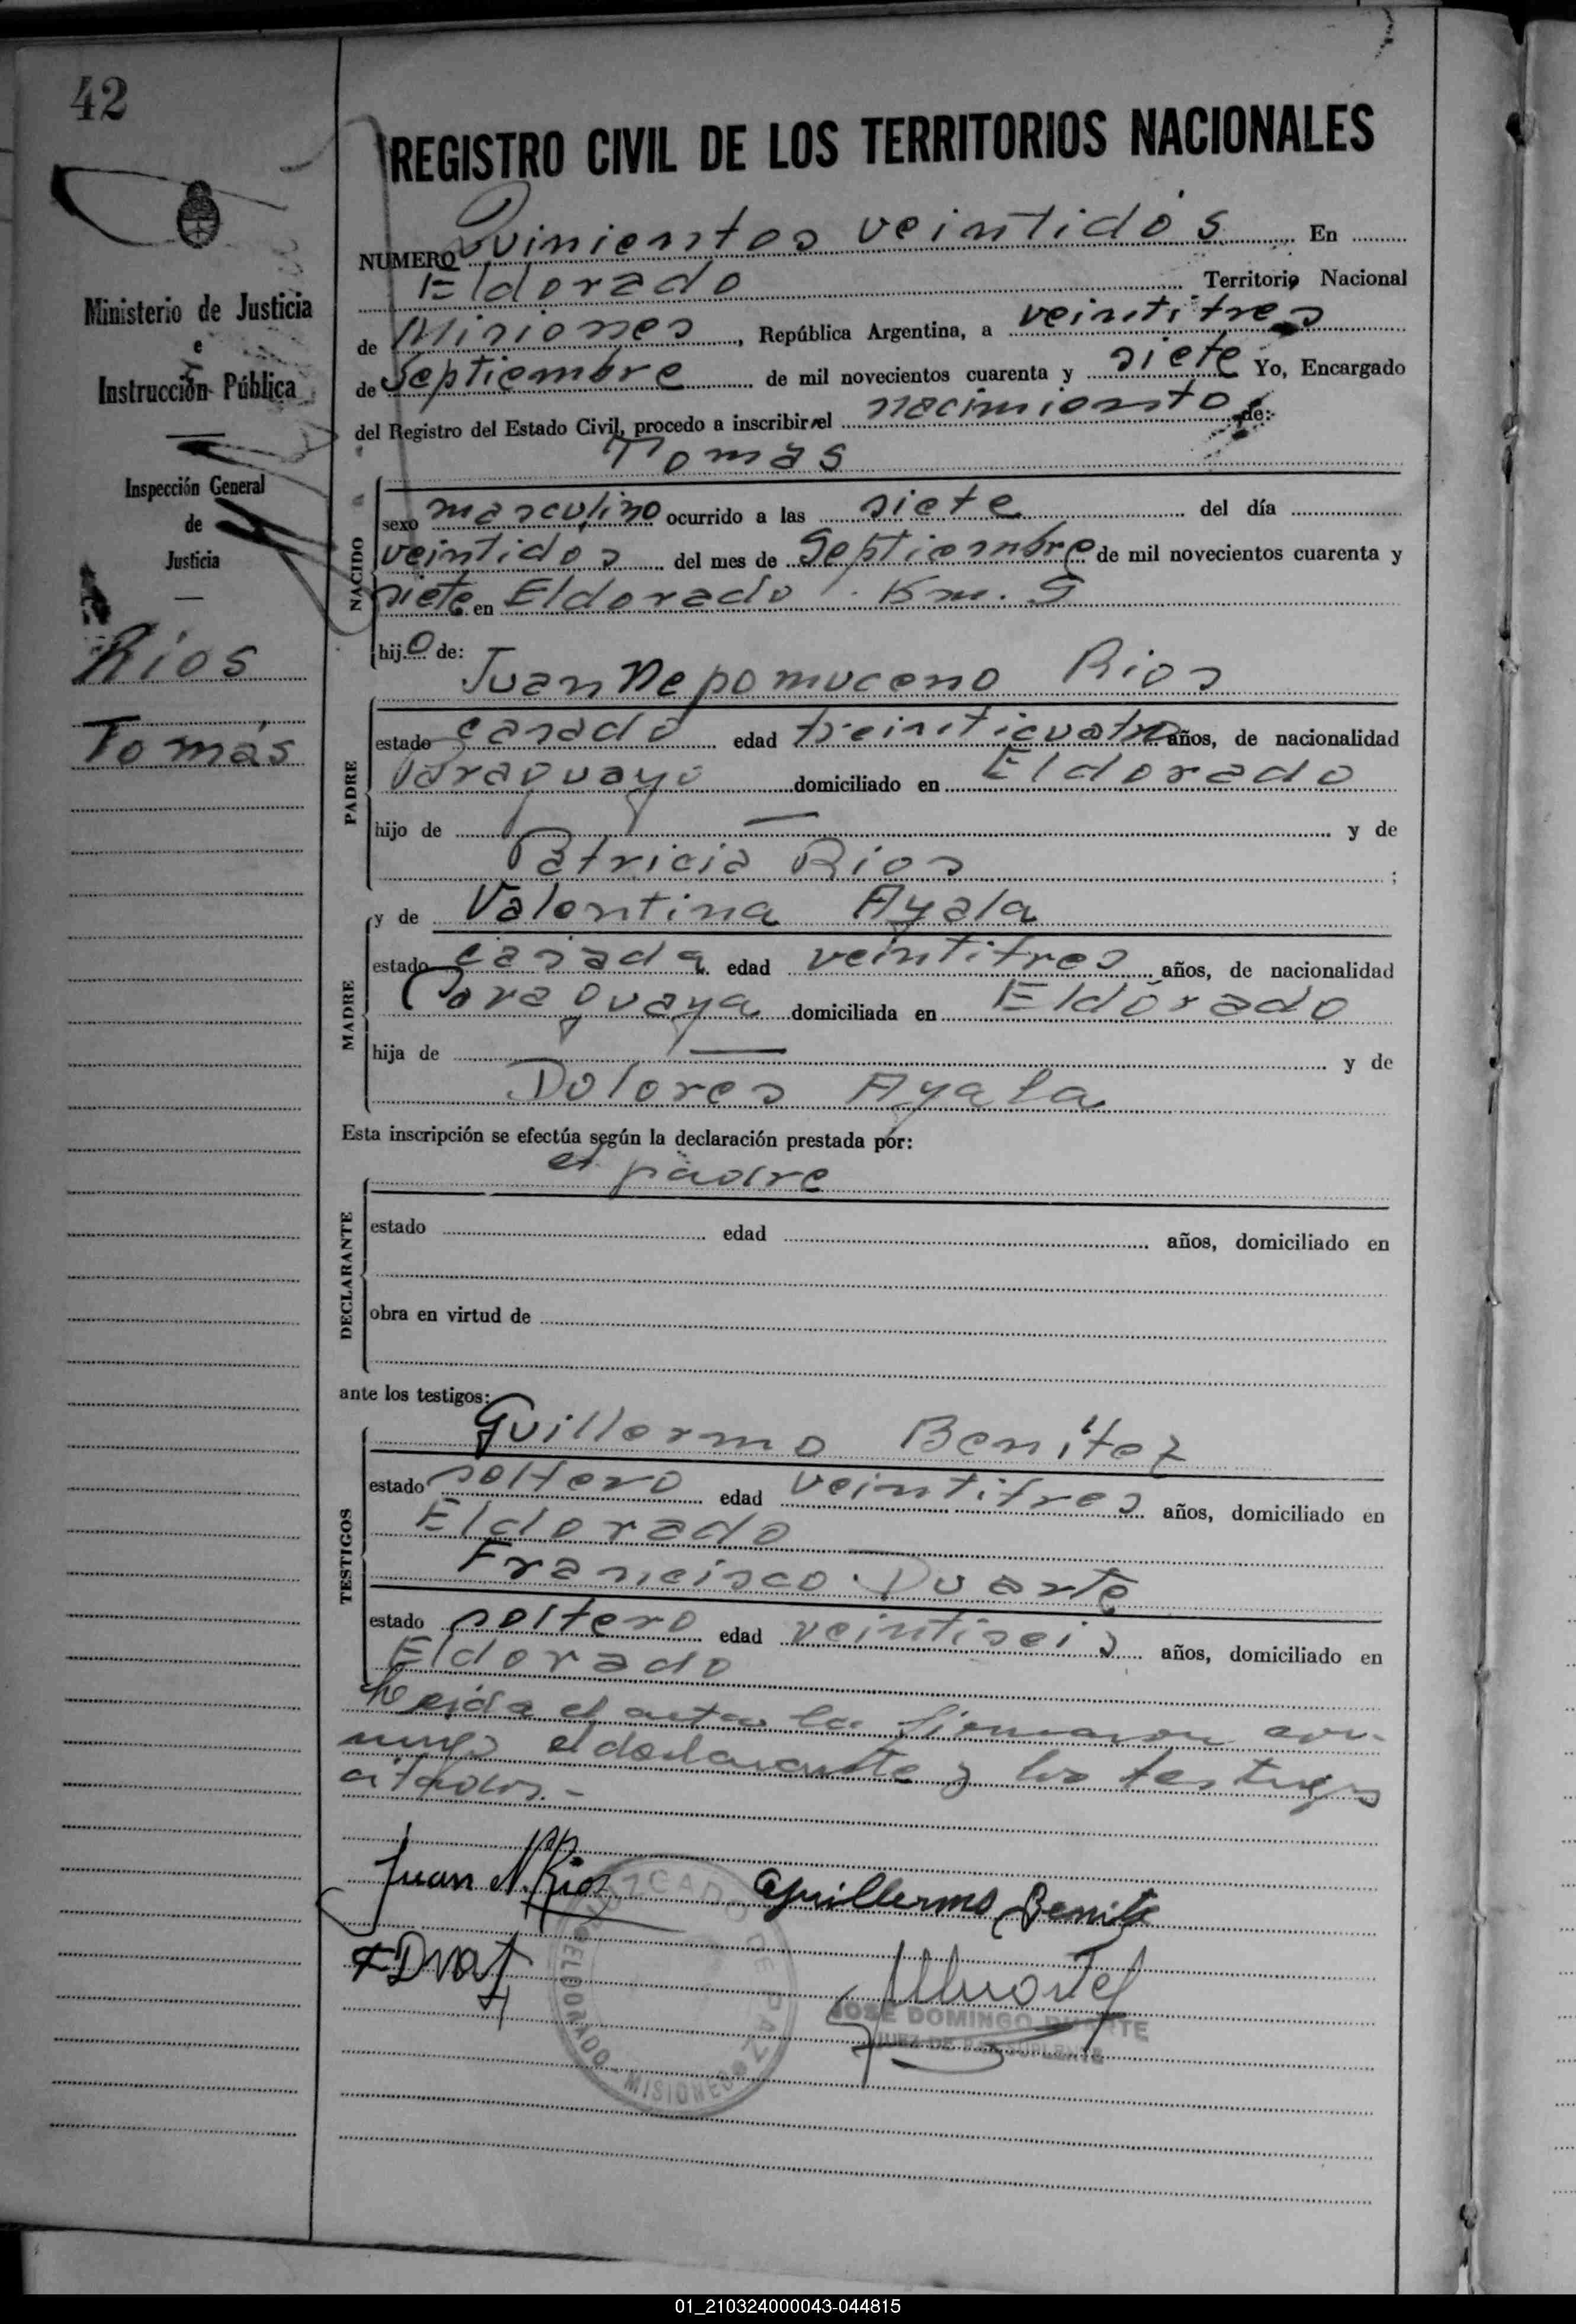 42
REGISTRO CIVIL DE LOS TERRITORIOS NACIONALES
Ministerio de Justicia
e
Instrucción Pública
Inspección General
de
Justicia
Ríos
Tomás
NUMERO Quinientos veintidós En
Eldorado Territorio Nacional
de Misiones, República Argentina, a veintitres
de Septiembre de mil novecientos cuarenta y siete Yo, Encargado
del Registro del Estado Civil, procedo a inscribir el nacimiento de:
Tomás
NACIDO
sexo masculino ocurrido a las siete del día
veintidós del mes de Septiembre de mil novecientos cuarenta y
siete en Eldorado Km.
hijo de:
Juan Nepomuceno Rios
PADRE
estado casado edad treinticuatro años, de nacionalidad
Paraguayo domiciliado en Eldorado
hijo de — y de
Patricia Rios ;
MADRE
y de Valentina Ayala
estado casada edad veintitres años, de nacionalidad
Paraguaya domiciliada en Eldorado
hija de — y de
Dolores Ayala
Esta inscripción se efectúa según la declaración prestada por:
el padre
DECLARANTE
estado edad años, domiciliado en
obra en virtud de
ante los testigos:
Guillermo Benítez
TESTIGOS
estado soltero edad veintitres años, domiciliado en
Eldorado
Francisco Duarte
estado soltero edad veintiseis años, domiciliado en
Eldorado
Leida el acta la firmaron con-
migo el declarante y los testigos
citados.-
Juan N. Rios Guillermo Benite
JUZGADO DE PAZ
ELDORADO - MISIONES
JOSÉ DOMINGO DUARTE
JUEZ DE PAZ SUPLENTE
01_210324000043-044815